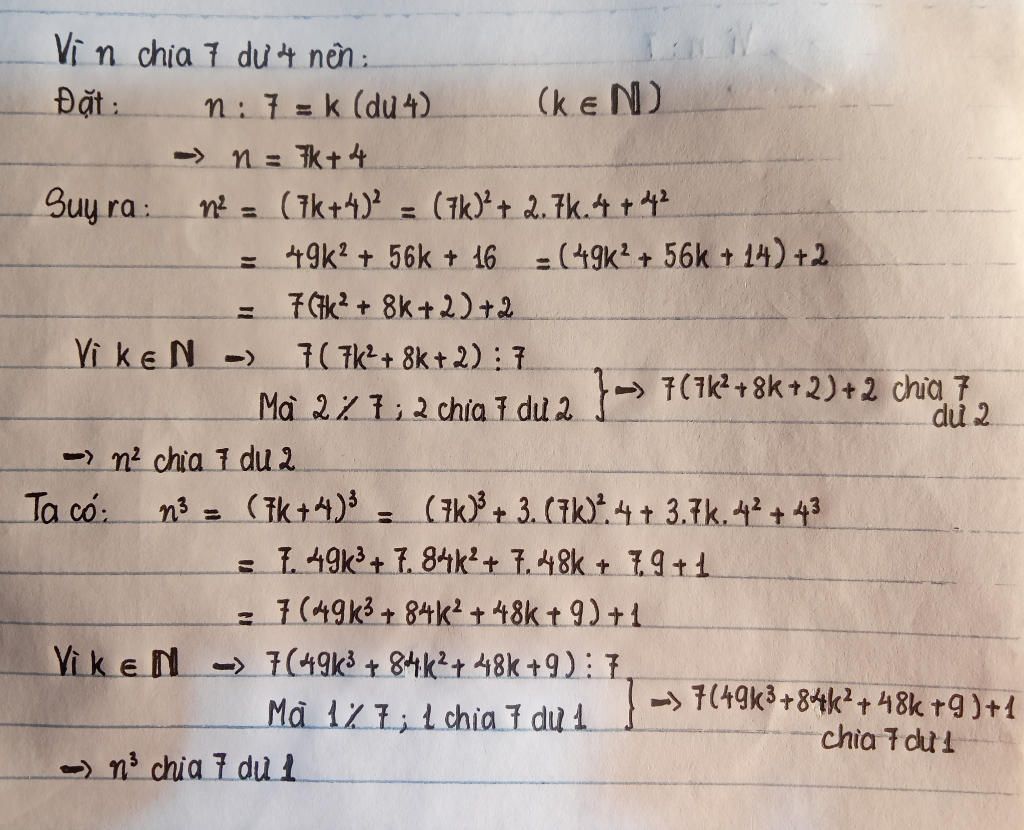 Vì n chia 7 dư 4 nên:
Đặt: n : 7 = k (dư 4) (k ∈ ℕ)
→ n = 7k + 4
Suy ra: n² = (7k+4)² = (7k)² + 2.7k.4 + 4²
= 49k² + 56k + 16 = (49k² + 56k + 14) + 2
= 7(7k² + 8k + 2) + 2
Vì k ∈ ℕ → 7(7k² + 8k + 2) ⋮ 7
Mà 2 ⋮̸ 7 ; 2 chia 7 dư 2 } → 7(7k² + 8k + 2) + 2 chia 7
dư 2
→ n² chia 7 dư 2
Ta có: n³ = (7k + 4)³ = (7k)³ + 3.(7k)².4 + 3.7k.4² + 4³
= 7.49k³ + 7.84k² + 7.48k + 7.9 + 1
= 7(49k³ + 84k² + 48k + 9) + 1
Vì k ∈ ℕ → 7(49k³ + 84k² + 48k + 9) ⋮ 7
Mà 1 ⋮̸ 7 ; 1 chia 7 dư 1 } → 7(49k³ + 84k² + 48k + 9) + 1
chia 7 dư 1
→ n³ chia 7 dư 1